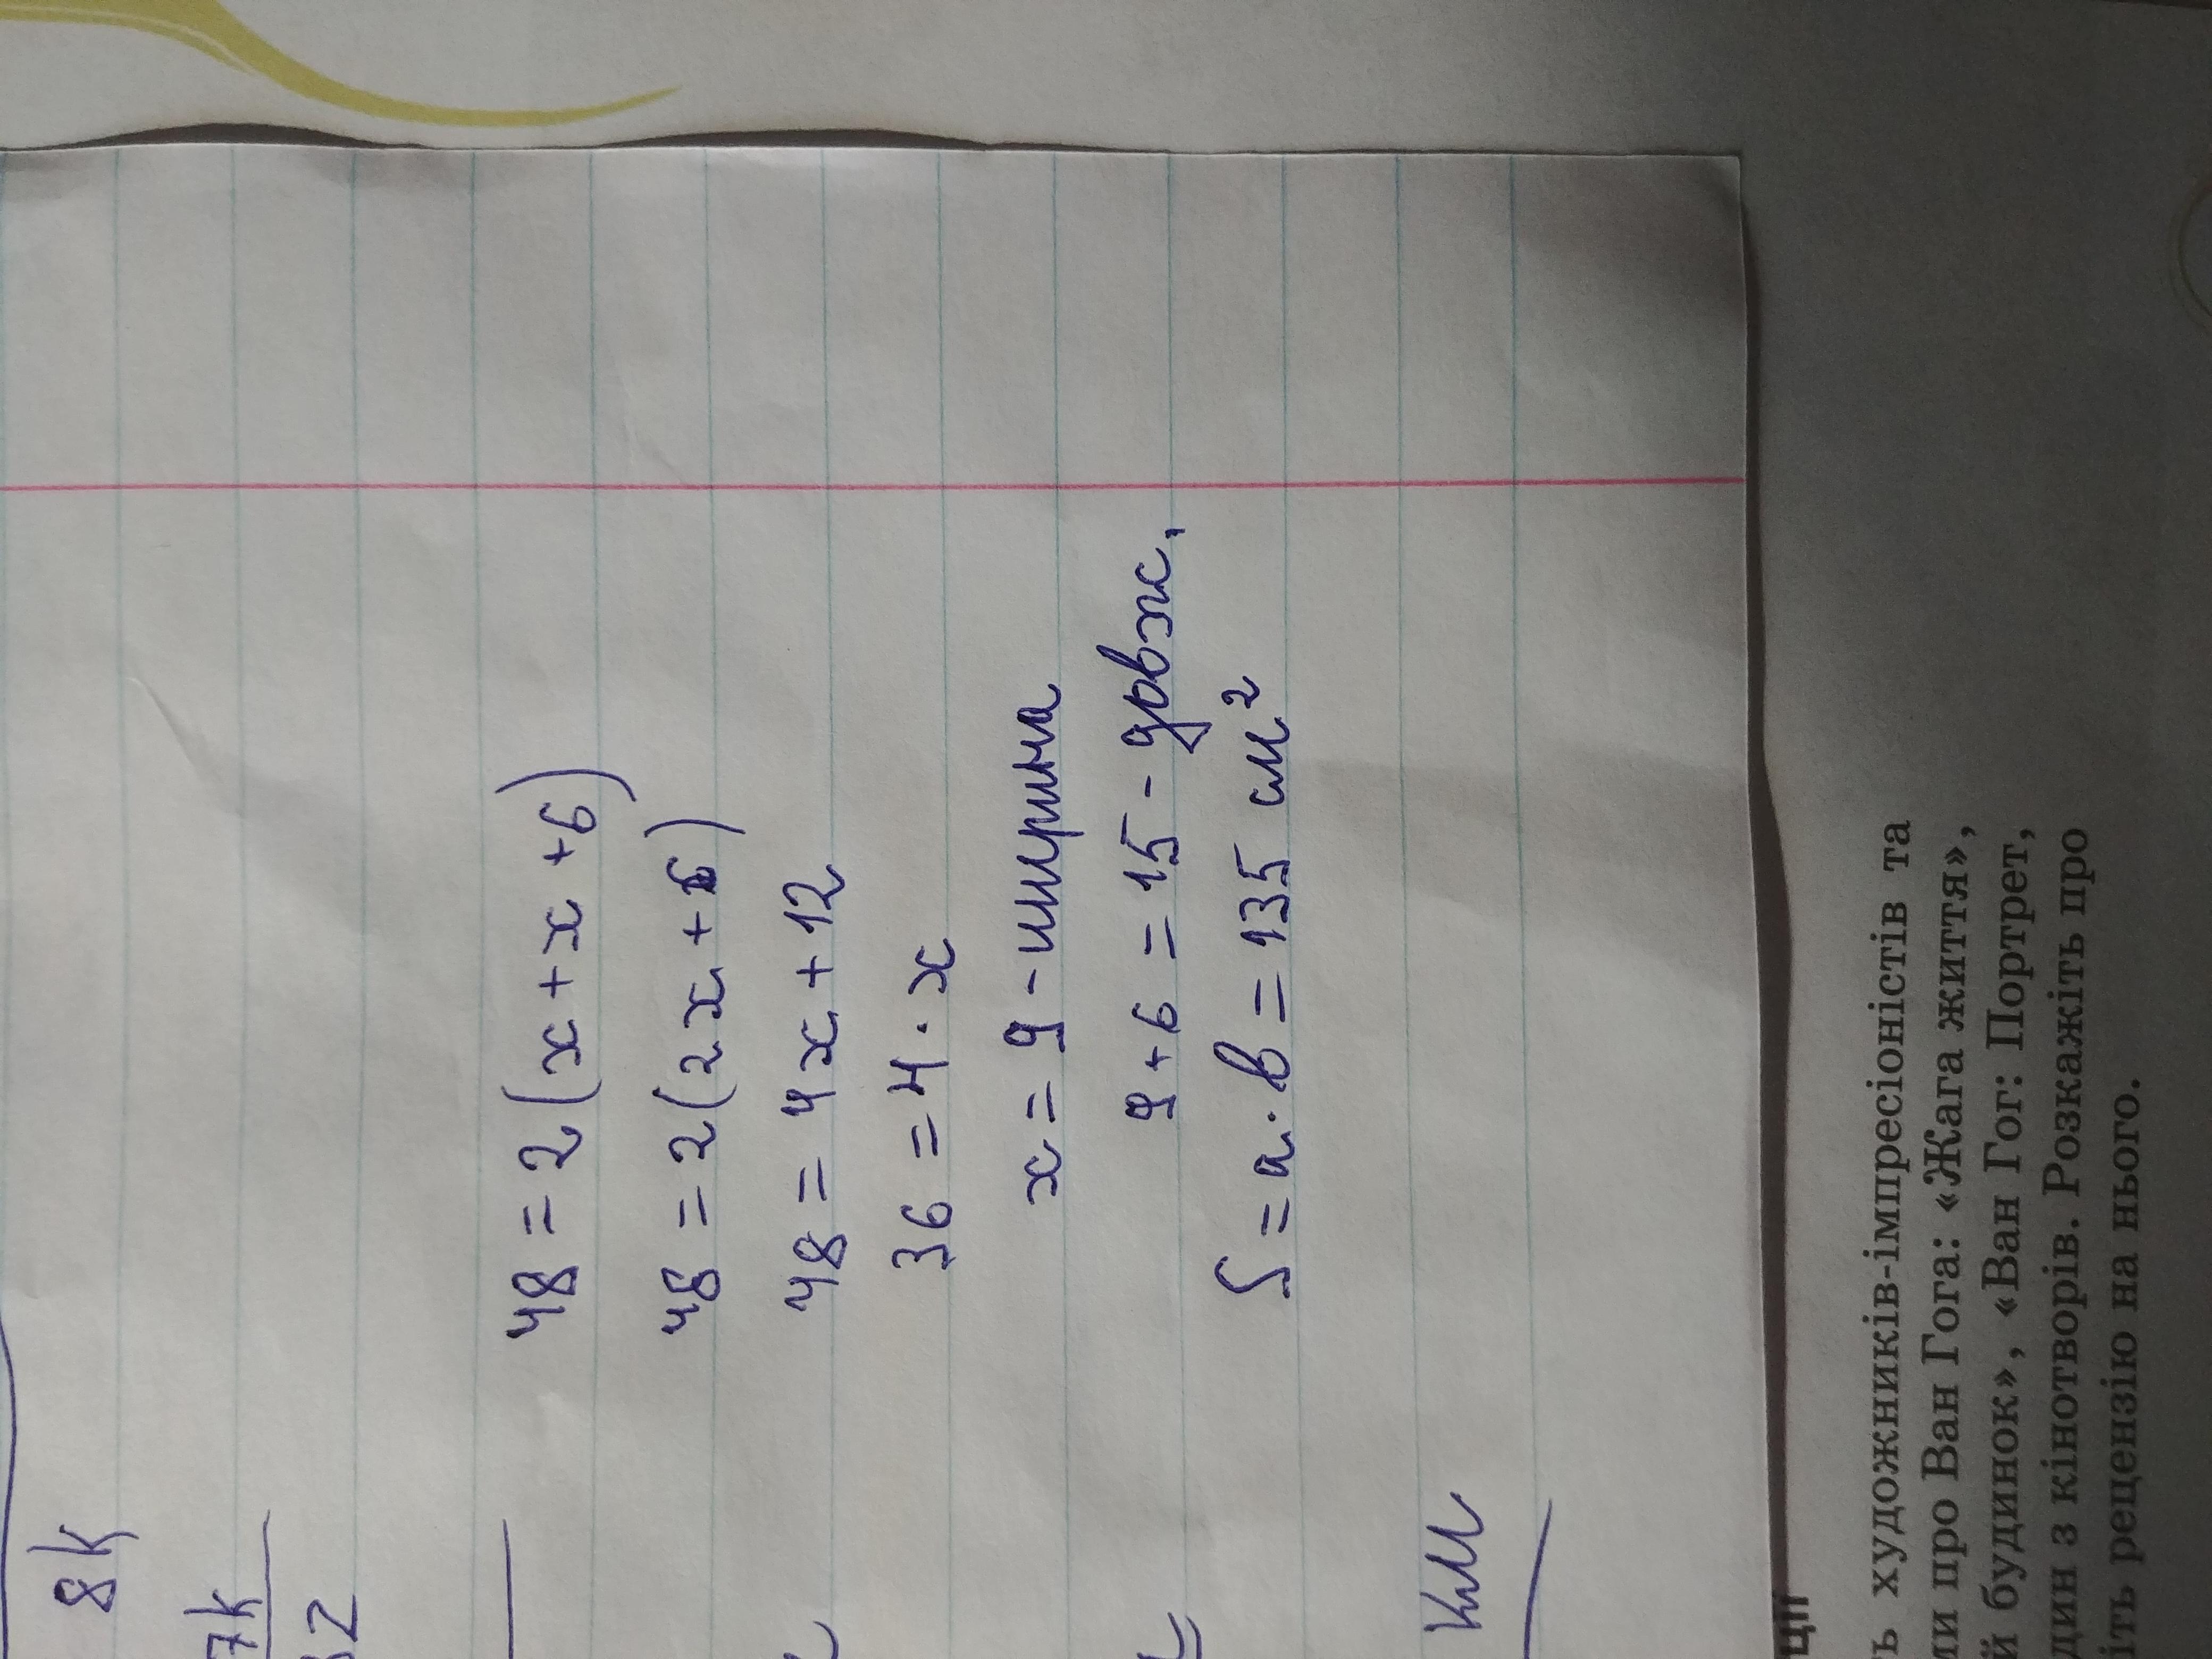 8k
7k
48 = 2(x+x+6)
48 = 2(2x+6)
48 = 4x+12
36 = 4·x
x = 9 - ширина
9+6 = 15 - довж.
S = a·b = 135 см²
км
ції
ь художників-імпресіоністів та
ми про Ван Гога: «Жага життя»,
й будинок», «Ван Гог: Портрет,
дин з кінотворів. Розкажіть про
іть рецензію на нього.